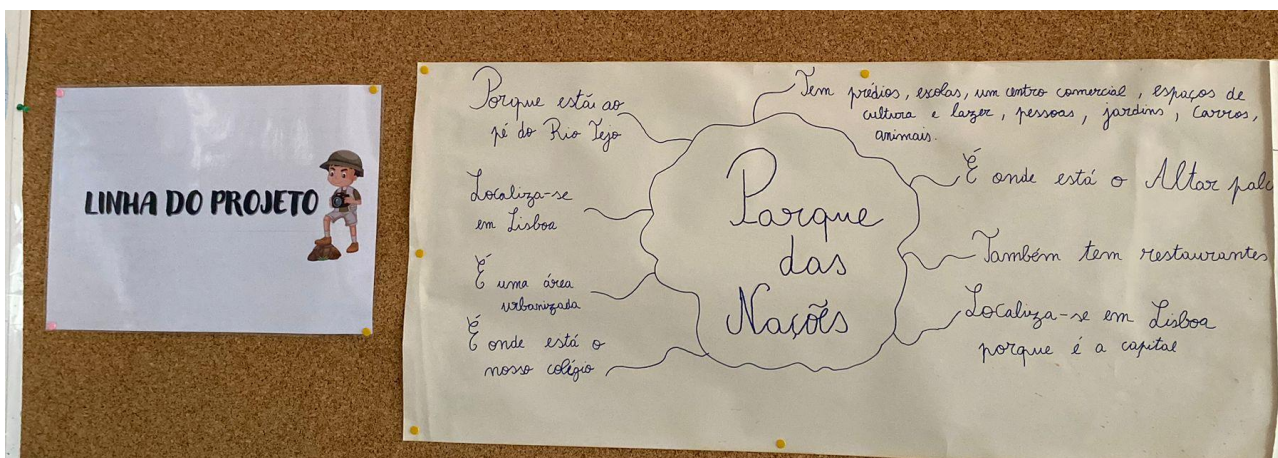 LINHA DO PROJETO
Porque está ao
pé do Rio Tejo
Localiza-se
em Lisboa
É uma área
urbanizada
É onde está o
nosso colégio
Parque
das
Nações
Tem prédios, escolas, um centro comercial, espaços de
cultura e lazer, pessoas, jardins, carros,
animais.
É onde está o Altar palc
Também tem restaurantes
Localiza-se em Lisboa
porque é a capital